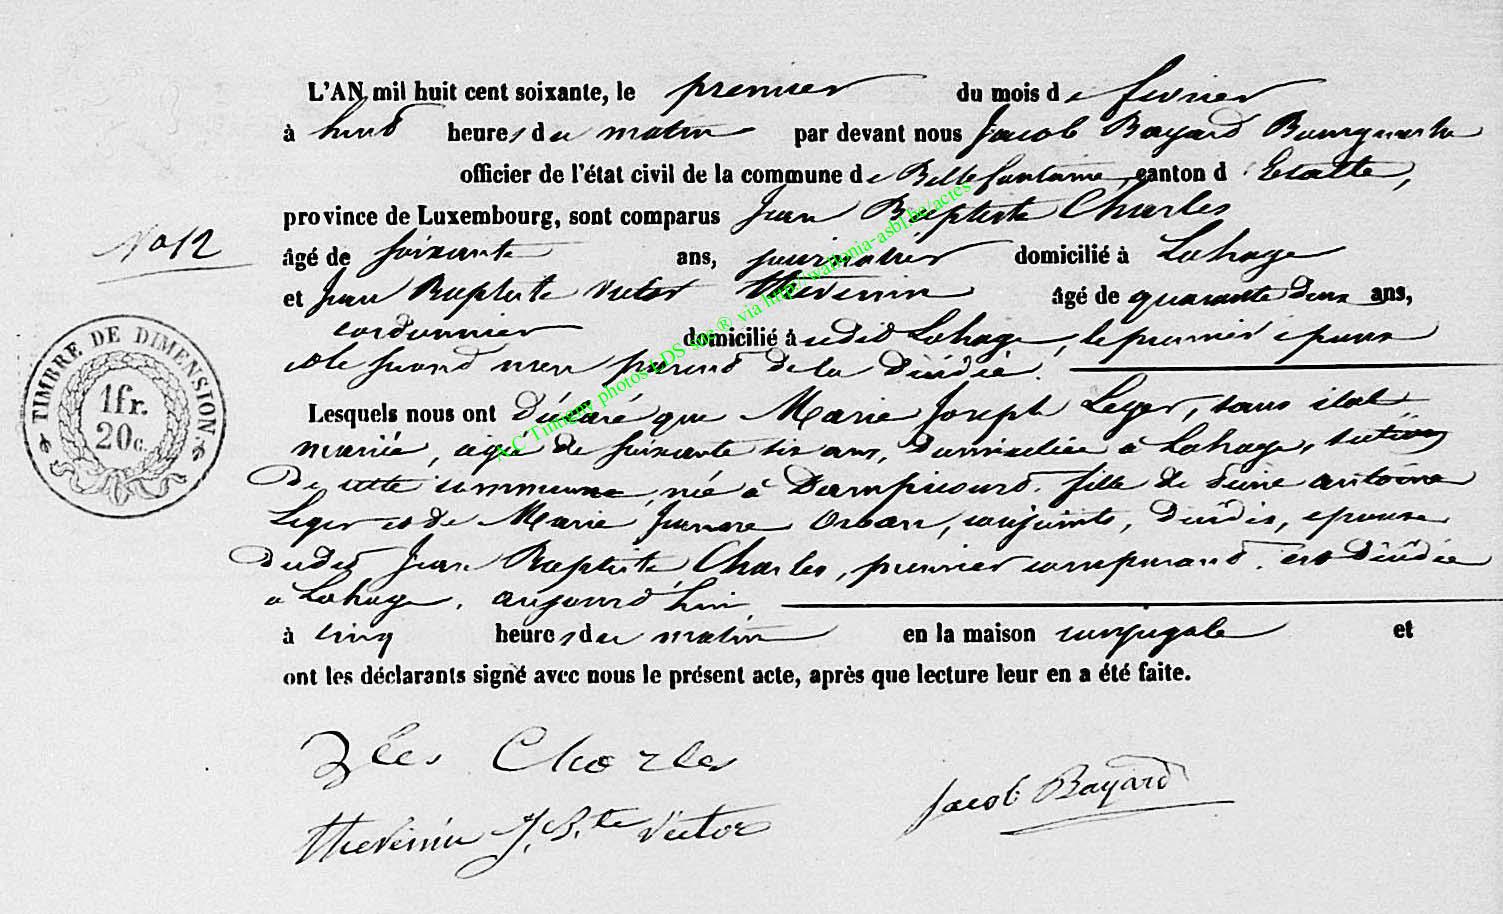 L'AN mil huit cent soixante, le premier du mois de fevrier
à huit heures du matin par devant nous Jacob Bayard Bourgmestre
officier de l'état civil de la commune de Bellefontaine, canton d'Etalle,
province de Luxembourg, sont comparus Jean Baptiste Charles
No 12
âgé de soixante ans, journalier domicilié à Lahage
et Jean Baptiste Victor Thevenin âgé de quarante deux ans,
cordonnier domicilié à udit Lahage, le premier epoux
et le second non parent de la décédée.
Lesquels nous ont déclaré que Marie Joseph Leger, sans état
mariée, agée de soixante six ans, domiciliée à Lahage, section
De cette commune, née à Dampicourt, fille de antoine
Leger et de Marie Jeanne Orban, conjoints, décédés, epouse
dudit Jean Baptiste Charles, premier comparant, est décédée
a Lahage, aujourd'hui
à cinq heures du matin en la maison conjugale et
ont les déclarants signé avec nous le présent acte, après que lecture leur en a été faite.
TIMBRE DE DIMENSION
1fr.
20c.
A.C Tintigny photos LDS sur ® via http://wallonia-asbl.be/actes
Charles
Jacob Bayard
Thevenin J. B.te Victor